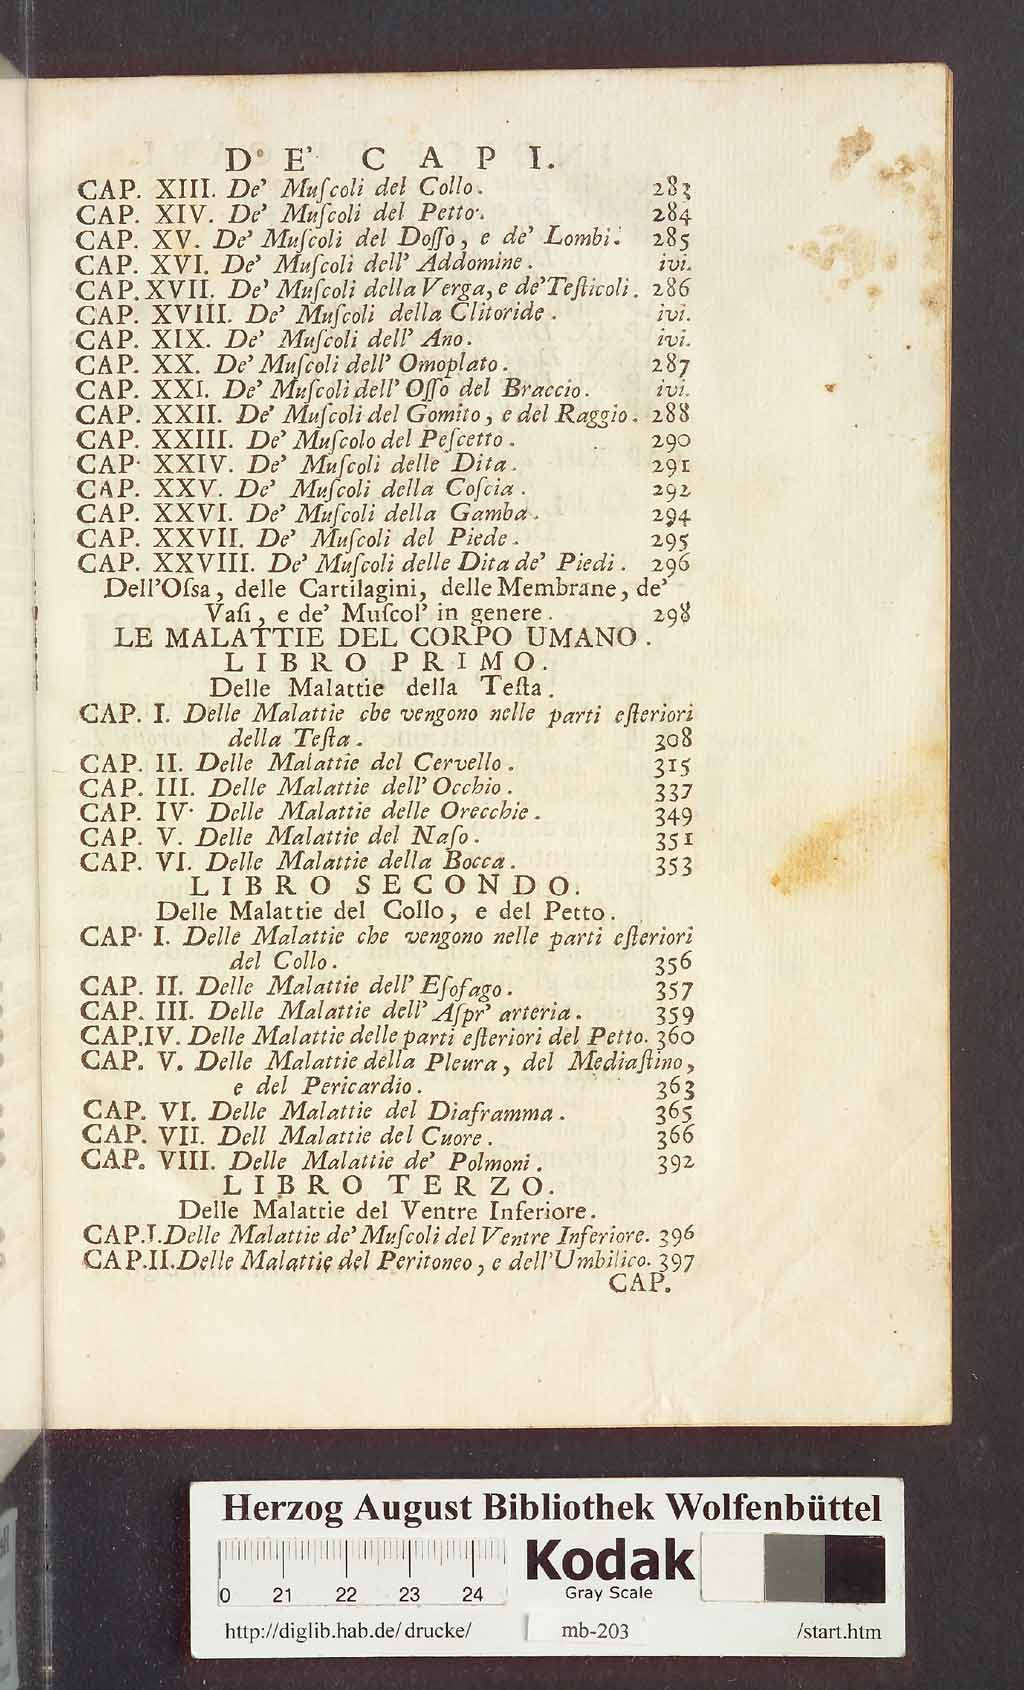 D' E' C A P I.
CAP. XIII. De' Muſcoli del Collo. 283
CAP. XIV. De' Muſcoli del Petto. 284
CAP. XV. De' Muſcoli del Doſſo, e de' Lombi. 285
CAP. XVI. De' Muſcoli dell' Addomine. ivi.
CAP. XVII. De' Muſcoli della Verga, e de' Teſticoli. 286
CAP. XVIII. De' Muſcoli della Clitoride. ivi.
CAP. XIX. De' Muſcoli dell' Ano. ivi.
CAP. XX. De' Muſcoli dell' Omoplato. 287
CAP. XXI. De' Muſcoli dell' Oſſo del Braccio. ivi.
CAP. XXII. De' Muſcoli del Gomito, e del Raggio. 288
CAP. XXIII. De' Muſcolo del Peſcetto. 290
CAP. XXIV. De' Muſcoli delle Dita. 291
CAP. XXV. De' Muſcoli della Coſcia. 292
CAP. XXVI. De' Muſcoli della Gamba. 294
CAP. XXVII. De' Muſcoli del Piede. 295
CAP. XXVIII. De' Muſcoli delle Dita de' Piedi. 296
Dell'Oſsa, delle Cartilagini, delle Membrane, de'
Vaſi, e de' Muſcol' in genere. 298
LE MALATTIE DEL CORPO UMANO.
LIBRO PRIMO.
Delle Malattie della Teſta.
CAP. I. Delle Malattie che vengono nelle parti eſteriori
della Teſta. 308
CAP. II. Delle Malattie del Cervello. 315
CAP. III. Delle Malattie dell' Occhio. 337
CAP. IV. Delle Malattie delle Orecchie. 349
CAP. V. Delle Malattie del Naſo. 351
CAP. VI. Delle Malattie della Bocca. 353
LIBRO SECONDO.
Delle Malattie del Collo, e del Petto.
CAP. I. Delle Malattie che vengono nelle parti eſteriori
del Collo. 356
CAP. II. Delle Malattie dell' Eſofago. 357
CAP. III. Delle Malattie dell' Aſpr' arteria. 359
CAP.IV. Delle Malattie delle parti eſteriori del Petto. 360
CAP. V. Delle Malattie della Pleura, del Mediaſtino,
e del Pericardio. 363
CAP. VI. Delle Malattie del Diaframma. 365
CAP. VII. Dell Malattie del Cuore. 366
CAP. VIII. Delle Malattie de' Polmoni. 392
LIBRO TERZO.
Delle Malattie del Ventre Inferiore.
CAP.I. Delle Malattie de' Muſcoli del Ventre Inferiore. 396
CAP.II. Delle Malattie del Peritoneo, e dell'Umbilico. 397
CAP.
Herzog August Bibliothek Wolfenbüttel
0 21 22 23 24
Kodak
Gray Scale
http://diglib.hab.de/drucke/ mb-203 /start.htm